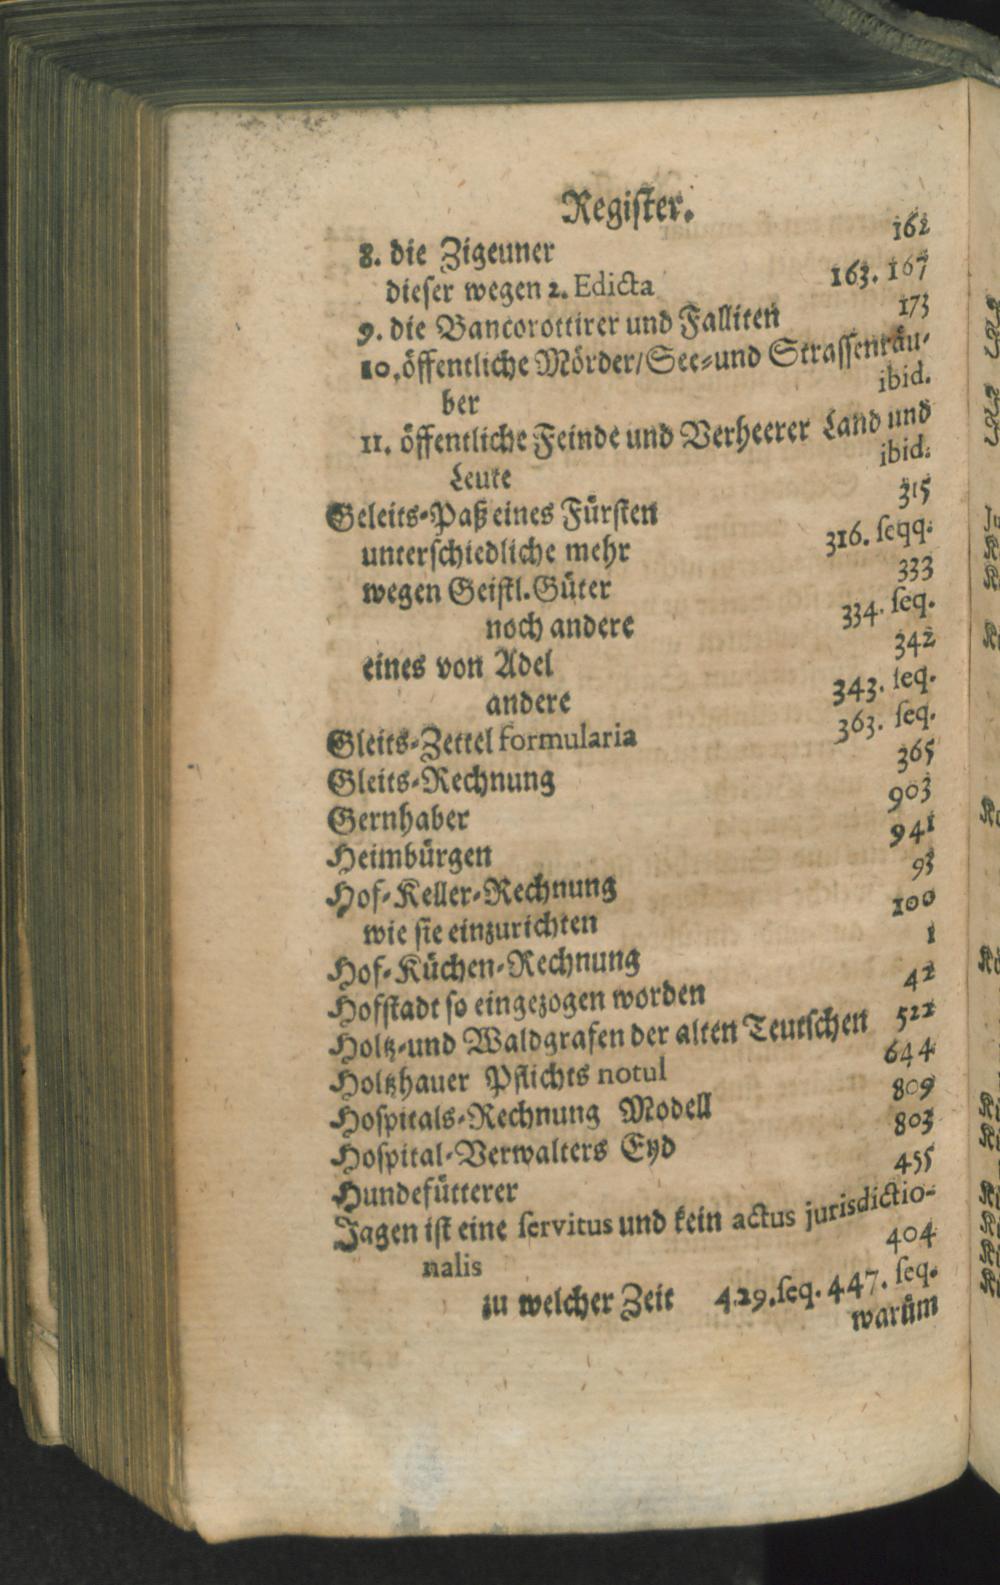 Register.
8. die Zigeuner 162
dieser wegen 2. Edicta 163. 167
9. die Bancorottirer und Falliten 173
10. öffentliche Mörder/See-und Strassenräu-
ber ibid.
11. öffentliche Feinde und Verheerer Land und
Leute ibid.
Geleits-Paß eines Fürsten 315
unterschiedliche mehr 316. seqq.
wegen Geistl. Güter 333
noch andere 334. seq.
eines von Adel 342
andere 343. seq.
Gleits-Zettel formularia 363. seq.
Gleits-Rechnung 365
Gernhaber 903
Heimbürgen 941
Hof-Keller-Rechnung 93
wie sie einzurichten 100
Hof-Küchen-Rechnung 1
Hofstadt so eingezogen worden 42
Holtz-und Waldgrafen der alten Teutschen 522
Holtzhauer Pflichts notul 644
Hospitals-Rechnung Modell 809
Hospital-Verwalters Eyd 803
Hundefütterer 455
Jagen ist eine servitus und kein actus jurisdictio-
nalis 404
zu welcher Zeit 429. seq. 447. seq.
warům